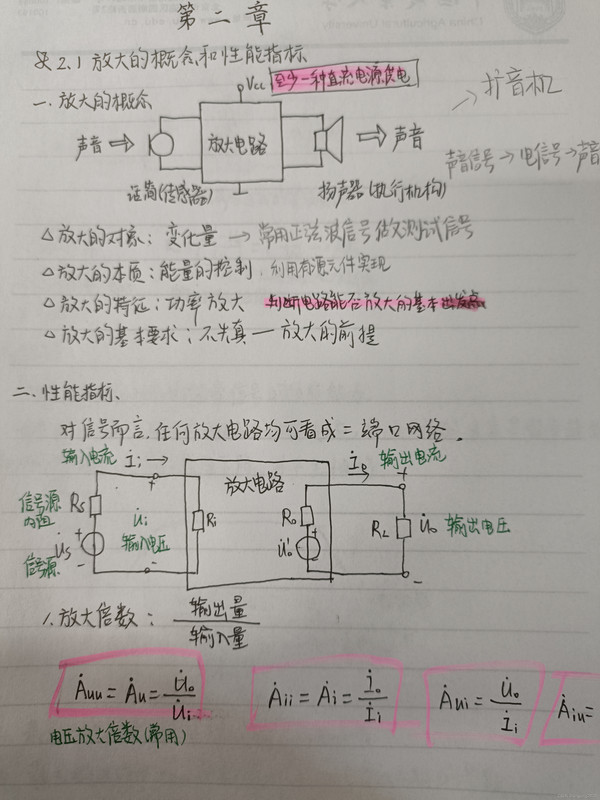 第二章
§2.1 放大的概念和性能指标
一. 放大的概念
Vcc 至少一种直流电源供电
→ 扩音机
声音 放大电路 声音
声音信号→电信号→声音
话筒(传感器) 扬声器(执行机构)
△放大的对象：变化量 → 常用正弦波信号做为测试信号
△放大的本质：能量的控制，利用有源元件实现
△放大的特征：功率放大 判断电路能否放大的基本出发点
△放大的基本要求：不失真—放大的前提
二.性能指标、
对信号而言，任何放大电路均可看成二端口网络.
输入电流 İi → 放大电路 İo 输出电流
信号源内阻 Rs + U̇i 输入电压 Ri Ro U̇o' + RL U̇o 输出电压
信号源 U̇s + -
1. 放大倍数： 输出量/输入量
Ȧuu = Ȧu = U̇o/U̇i Ȧii = Ȧi = İo/İi Ȧui = U̇o/İi Ȧiu =
电压放大倍数(常用)